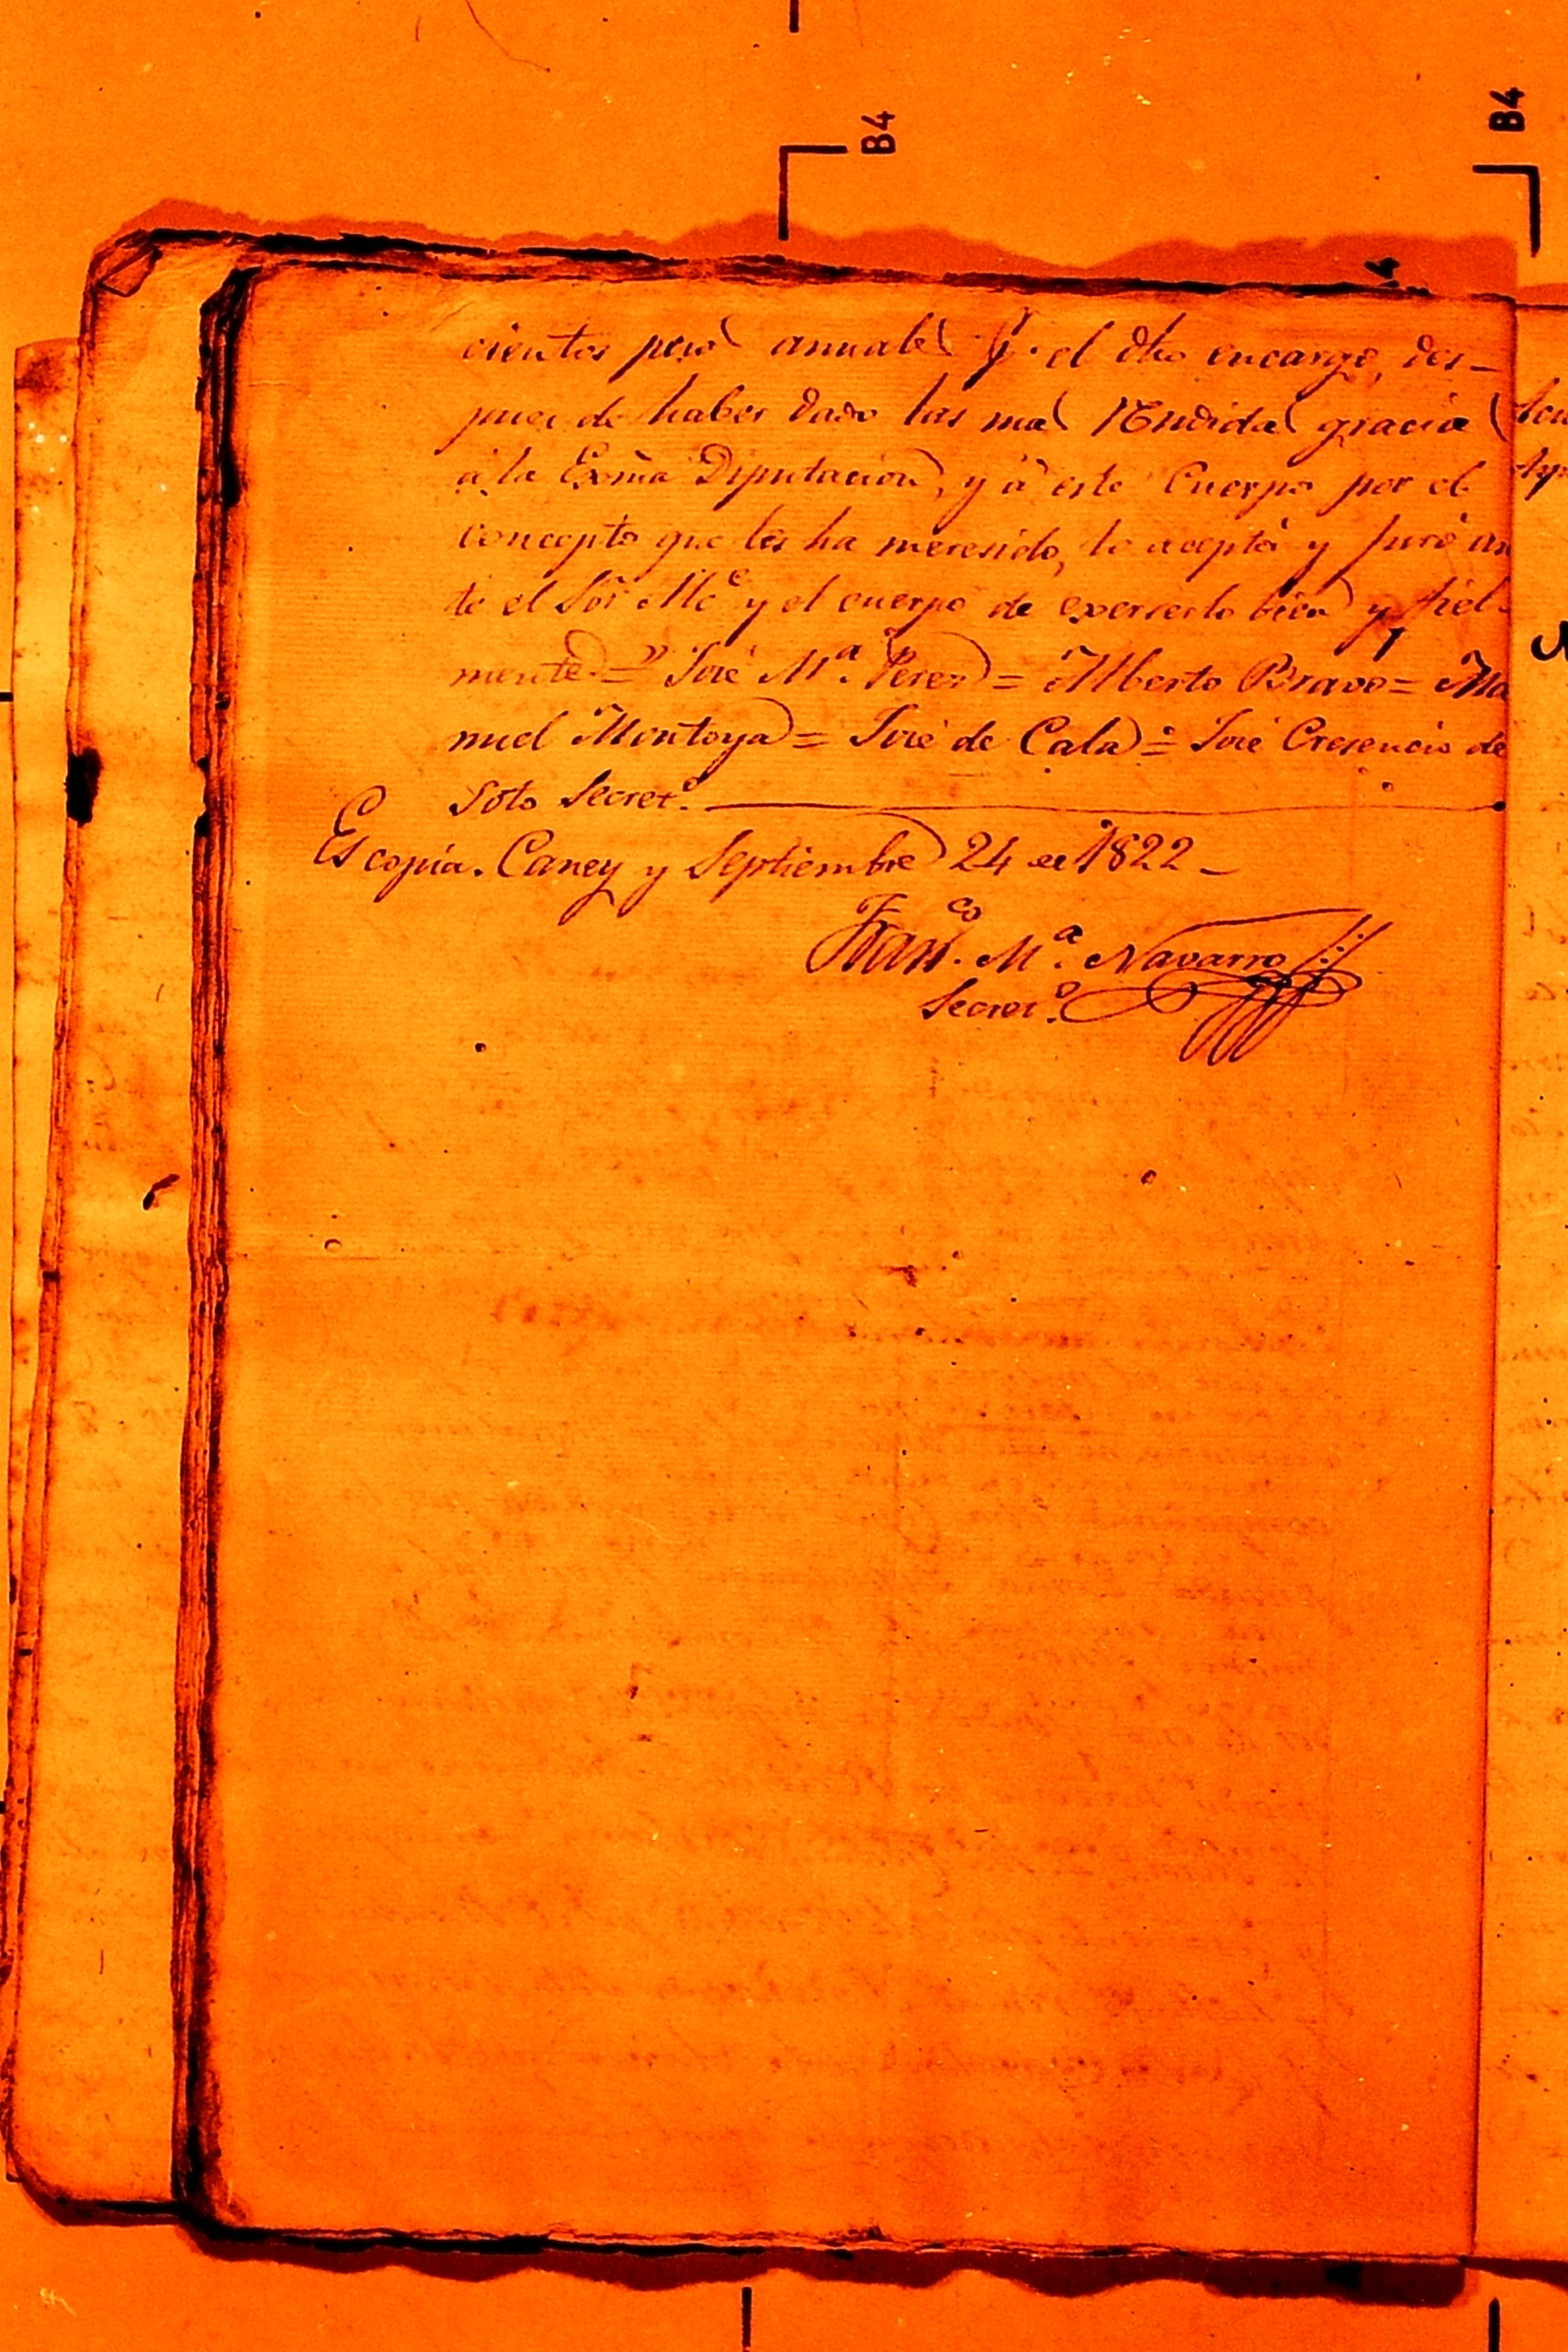 B4
B4
cientos pesos anuales p.r el dho encargo, des-
pues de haber dado las mas rendidas gracias
á la Exma Diputacion, y á este Cuerpo por el
concepto que les ha meresido, lo aceptó y juró an
te el Sor. Alc.e y el cuerpo de exerserlo bien y fiel-
mente = José M.a Perez = Alberto Bravo = Ma
nuel Montoya = José de Cala = José Cresencio de
Soto Secret.o
Es copia. Caney y Septiembre 24 de 1822 -
Fran.co M.a Navarro
Secret.o